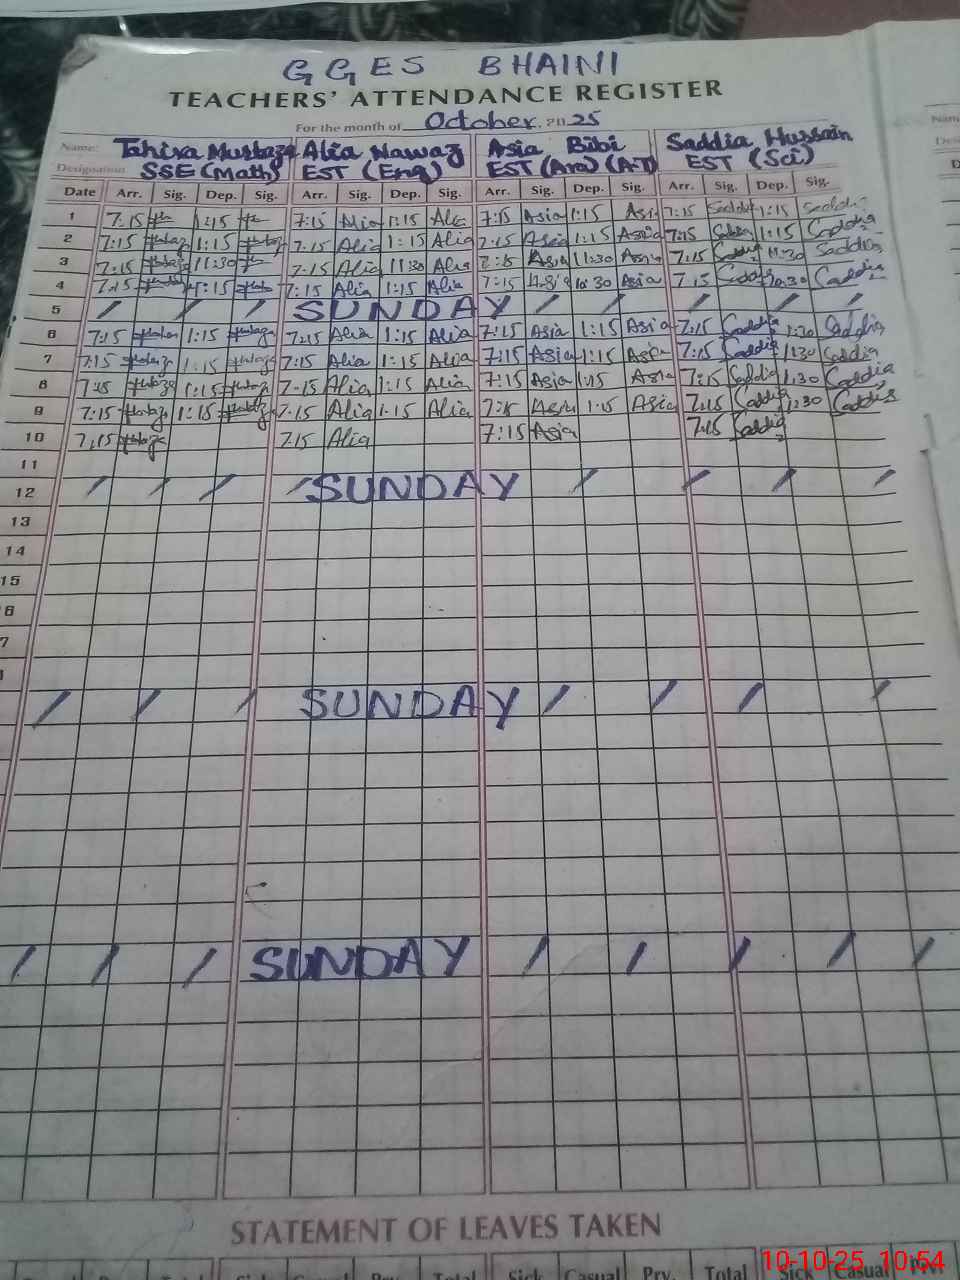 GGES BHAINI
TEACHERS' ATTENDANCE REGISTER
For the month of October, 2025
Name: Tahira Murtaza Alia Nawaz Asia Bibi Saddia Hussain
Designation SSE (Math) EST (Eng) EST (Ara) (A.T) EST (Sci)
Date Arr. Sig. Dep. Sig. Arr. Sig. Dep. Sig. Arr. Sig. Dep. Sig. Arr. Sig. Dep. Sig.
1 7:15 1:15 7:15 Alia 1:15 Alia 7:15 Asia 1:15 Asia 7:15 Saddia 1:15 Saddia
2 7:15 1:15 7:15 Alia 1:15 Alia 7:15 Asia 1:15 Asia 7:15 Saddia 1:15 Saddia
3 7:15 11:30 7:15 Alia 11:30 Alia 7:15 Asia 11:30 Asia 7:15 Saddia 11:30 Saddia
4 7:15 1:15 7:15 Alia 1:15 Alia 7:15 Asia 10:30 Asia 7:15 Saddia 10:30 Saddia
5 SUNDAY
6 7:15 1:15 7:15 Alia 1:15 Alia 7:15 Asia 1:15 Asia 7:15 Saddia 1:30 Saddia
7 7:15 1:15 7:15 Alia 1:15 Alia 7:15 Asia 1:15 Asia 7:15 Saddia 1:30 Saddia
8 7:15 1:15 7:15 Alia 1:15 Alia 7:15 Asia 1:15 Asia 7:15 Saddia 1:30 Saddia
9 7:15 1:15 7:15 Alia 1:15 Alia 7:15 Asia 1:15 Asia 7:15 Saddia 1:30 Saddia
10 7:15 7:15 Alia 7:15 Asia 7:15 Saddia
11
12 SUNDAY
13
14
15
6
7
SUNDAY
SUNDAY
STATEMENT OF LEAVES TAKEN
Sick Casual Prv. Total Sick Casual Prv.
10-10-25 10:54